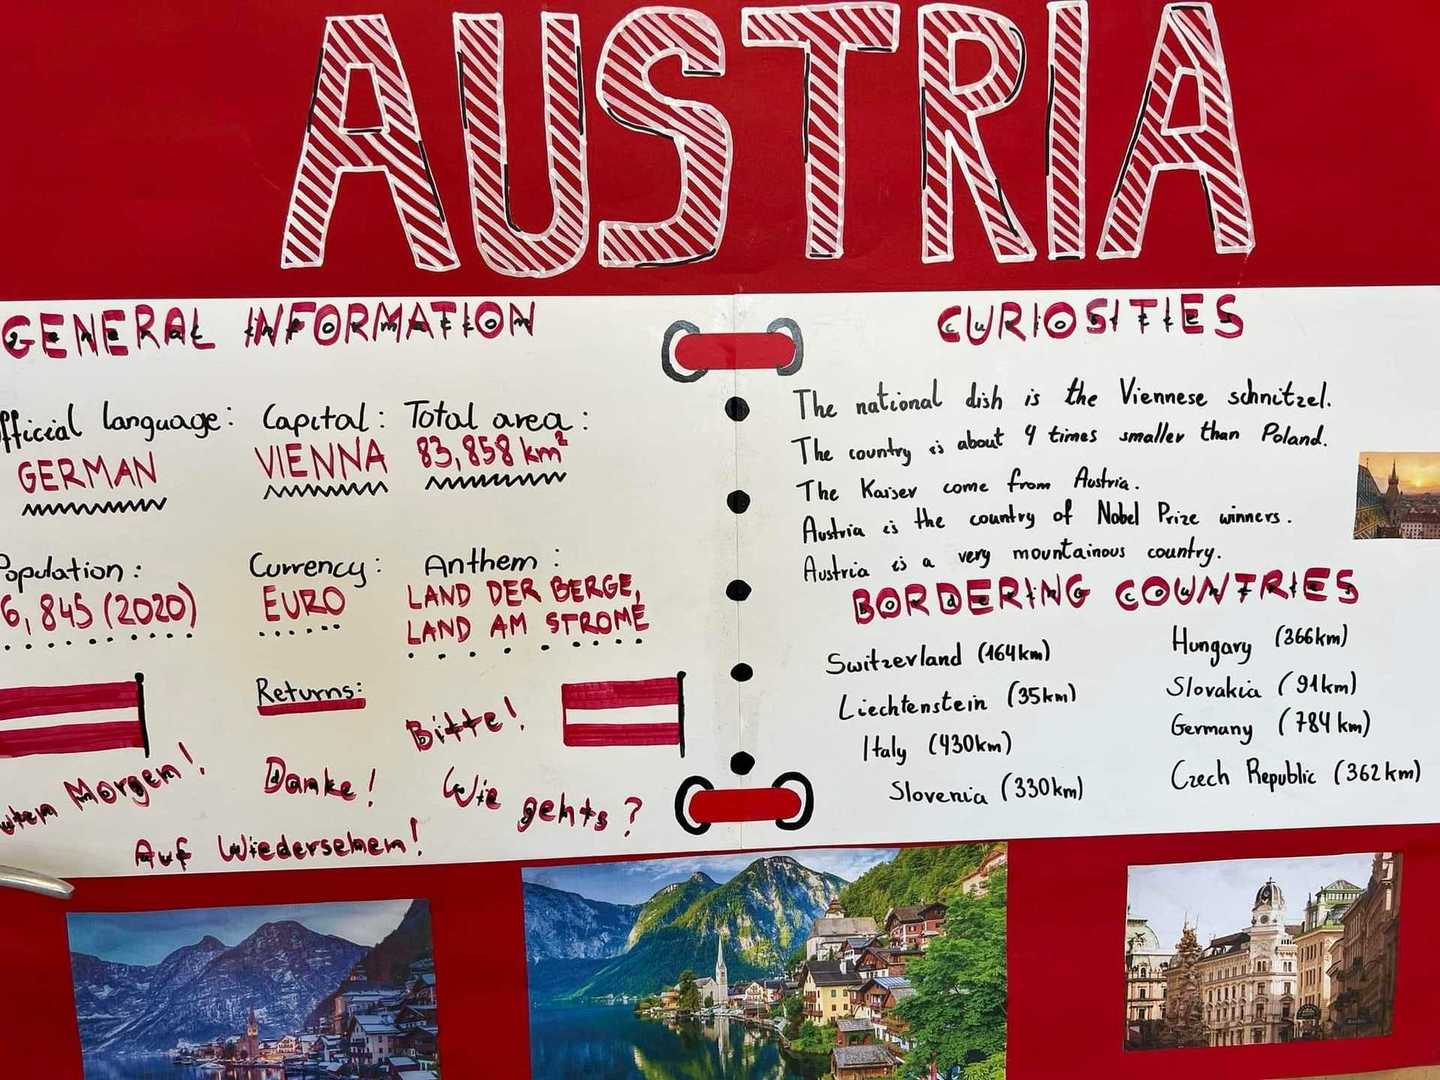 AUSTRIA
GENERAL INFORMATION
official language:
GERMAN
Capital:
VIENNA
Total area:
83,858 km²
Population:
6,845 (2020)
Currency:
EURO
Anthem:
LAND DER BERGE,
LAND AM STROME
Returns:
Bitte!
Morgen!
Danke!
Wie gehts?
Auf Wiedersehen!
CURIOSITIES
The national dish is the Viennese schnitzel.
The country is about 4 times smaller than Poland.
The Kaiser come from Austria.
Austria is the country of Nobel Prize winners.
Austria is a very mountainous country.
BORDERING COUNTRIES
Switzerland (164km)
Liechtenstein (35km)
Italy (430km)
Slovenia (330km)
Hungary (366km)
Slovakia (91km)
Germany (784km)
Czech Republic (362km)